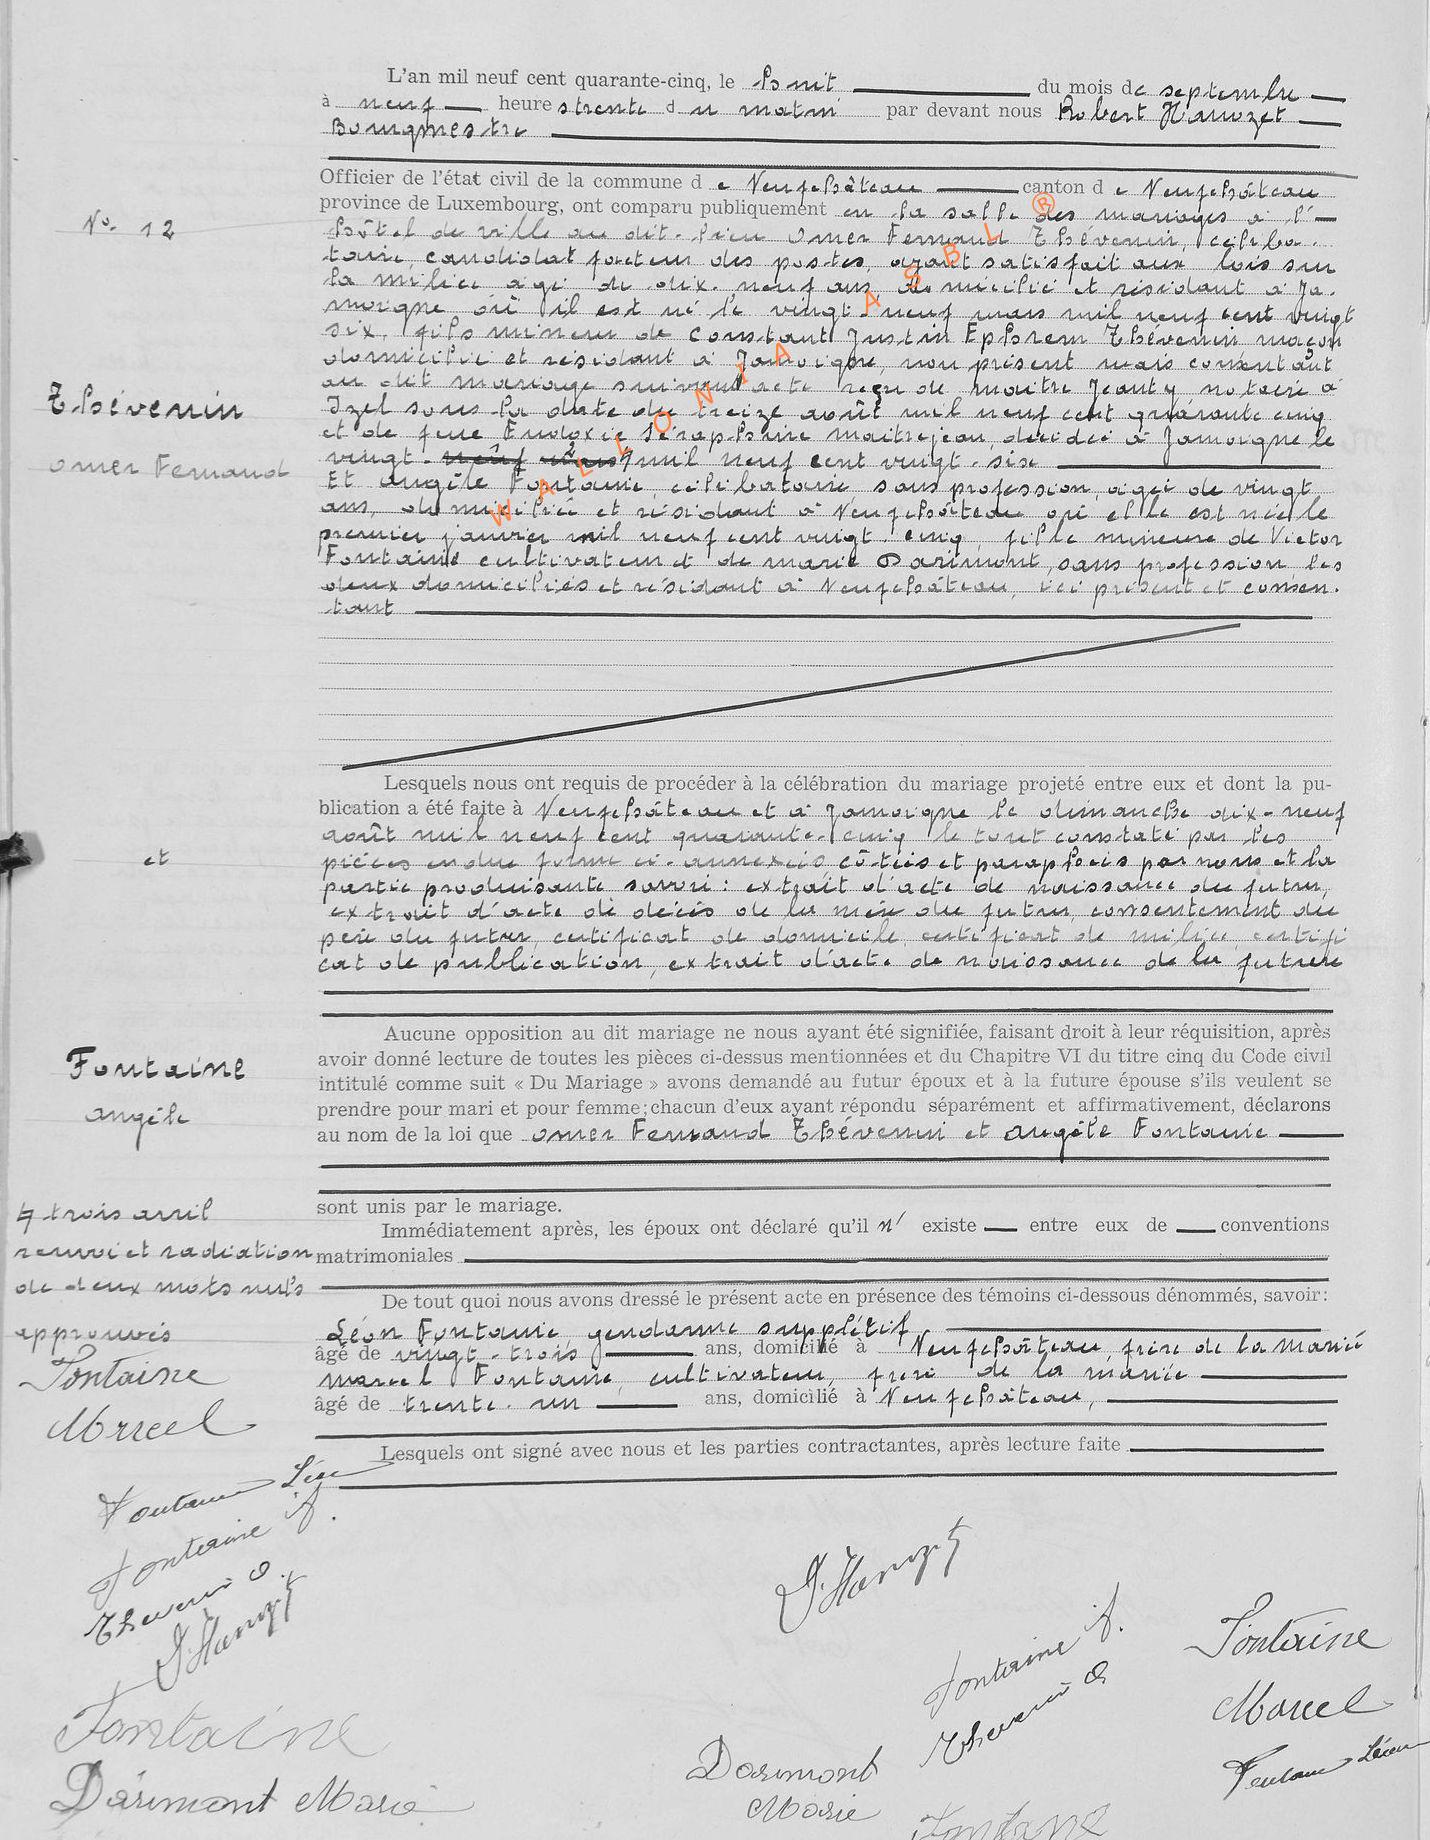 L'an mil neuf cent quarante-cinq, le huit du mois de septembre
à neuf heures trente du matin par devant nous Robert
Bourgmestre
Officier de l'état civil de la commune de Neufchâteau canton de Neufchâteau
province de Luxembourg, ont comparu publiquement en la salle des mariages à l'
N° 12
hôtel de ville au dit lieu Omer Fernand Thévenin, céliba-
taire, candidat facteur des postes, ayant satisfait aux lois sur
la milice âgé de dix-neuf ans domicilié et résidant à Ja-
moigne où il est né le vingt-neuf mars mil neuf cent vingt
six, fils mineur de Constant Justin Ephrem Thévenin maçon
domicilié et résidant à Jamoigne, non présent mais consentant
au dit mariage suivant acte reçu de maître Jeanty, notaire à
Thévenin
Izel sous la date du treize août mil neuf cent quarante cinq
et de feue Eudoxie Séraphine Maitrejean, décédée à Jamoigne le
Omer Fernand
vingt-neuf mars mil neuf cent vingt-six
Et Angèle Fontaine, célibataire sans profession, âgée de vingt
ans, domiciliée et résidant à Neufchâteau où elle est née le
premier janvier mil neuf cent vingt-cinq, fille mineure de Victor
Fontaine cultivateur et de Marie Darimont, sans profession les
deux domiciliés et résidant à Neufchâteau, ici présent et consen-
tant
WALLONIA ASBL ®
Lesquels nous ont requis de procéder à la célébration du mariage projeté entre eux et dont la pu-
blication a été faite à Neufchâteau et à Jamoigne le dimanche dix-neuf
août mil neuf cent quarante-cinq le tout constaté par les
et
pièces en due forme ci-annexées côtées et paraphées par nous et la
partie produisante savoir: extrait d'acte de naissance du futur,
extrait d'acte de décès de la mère du futur, consentement du
père du futur, certificat de domicile, certificat de milice, certifi
cat de publication, extrait d'acte de naissance de la future
Aucune opposition au dit mariage ne nous ayant été signifiée, faisant droit à leur réquisition, après
avoir donné lecture de toutes les pièces ci-dessus mentionnées et du Chapitre VI du titre cinq du Code civil
Fontaine
intitulé comme suit « Du Mariage » avons demandé au futur époux et à la future épouse s'ils veulent se
prendre pour mari et pour femme; chacun d'eux ayant répondu séparément et affirmativement, déclarons
Angèle
au nom de la loi que Omer Fernand Thévenin et Angèle Fontaine
sont unis par le mariage.
trois avril
Immédiatement après, les époux ont déclaré qu'il n' existe entre eux de conventions
renvoi et radiation
matrimoniales
de deux mots nuls
De tout quoi nous avons dressé le présent acte en présence des témoins ci-dessous dénommés, savoir:
approuvés
Léon Fontaine, gendarme supplétif
âgé de vingt-trois ans, domicilié à Neufchâteau, frère de la mariée
Fontaine
Marcel Fontaine, cultivateur, frère de la mariée
âgé de trente-un ans, domicilié à Neufchâteau,
Marcel
Lesquels ont signé avec nous et les parties contractantes, après lecture faite
Fontaine Léon
Fontaine A.
Thevenin O.
Fontaine A.
Fontaine
Thevenin O
Marcel
Fontaine
Darimont
Fontaine Léon
Darimont Marie
Marie
Fontaine